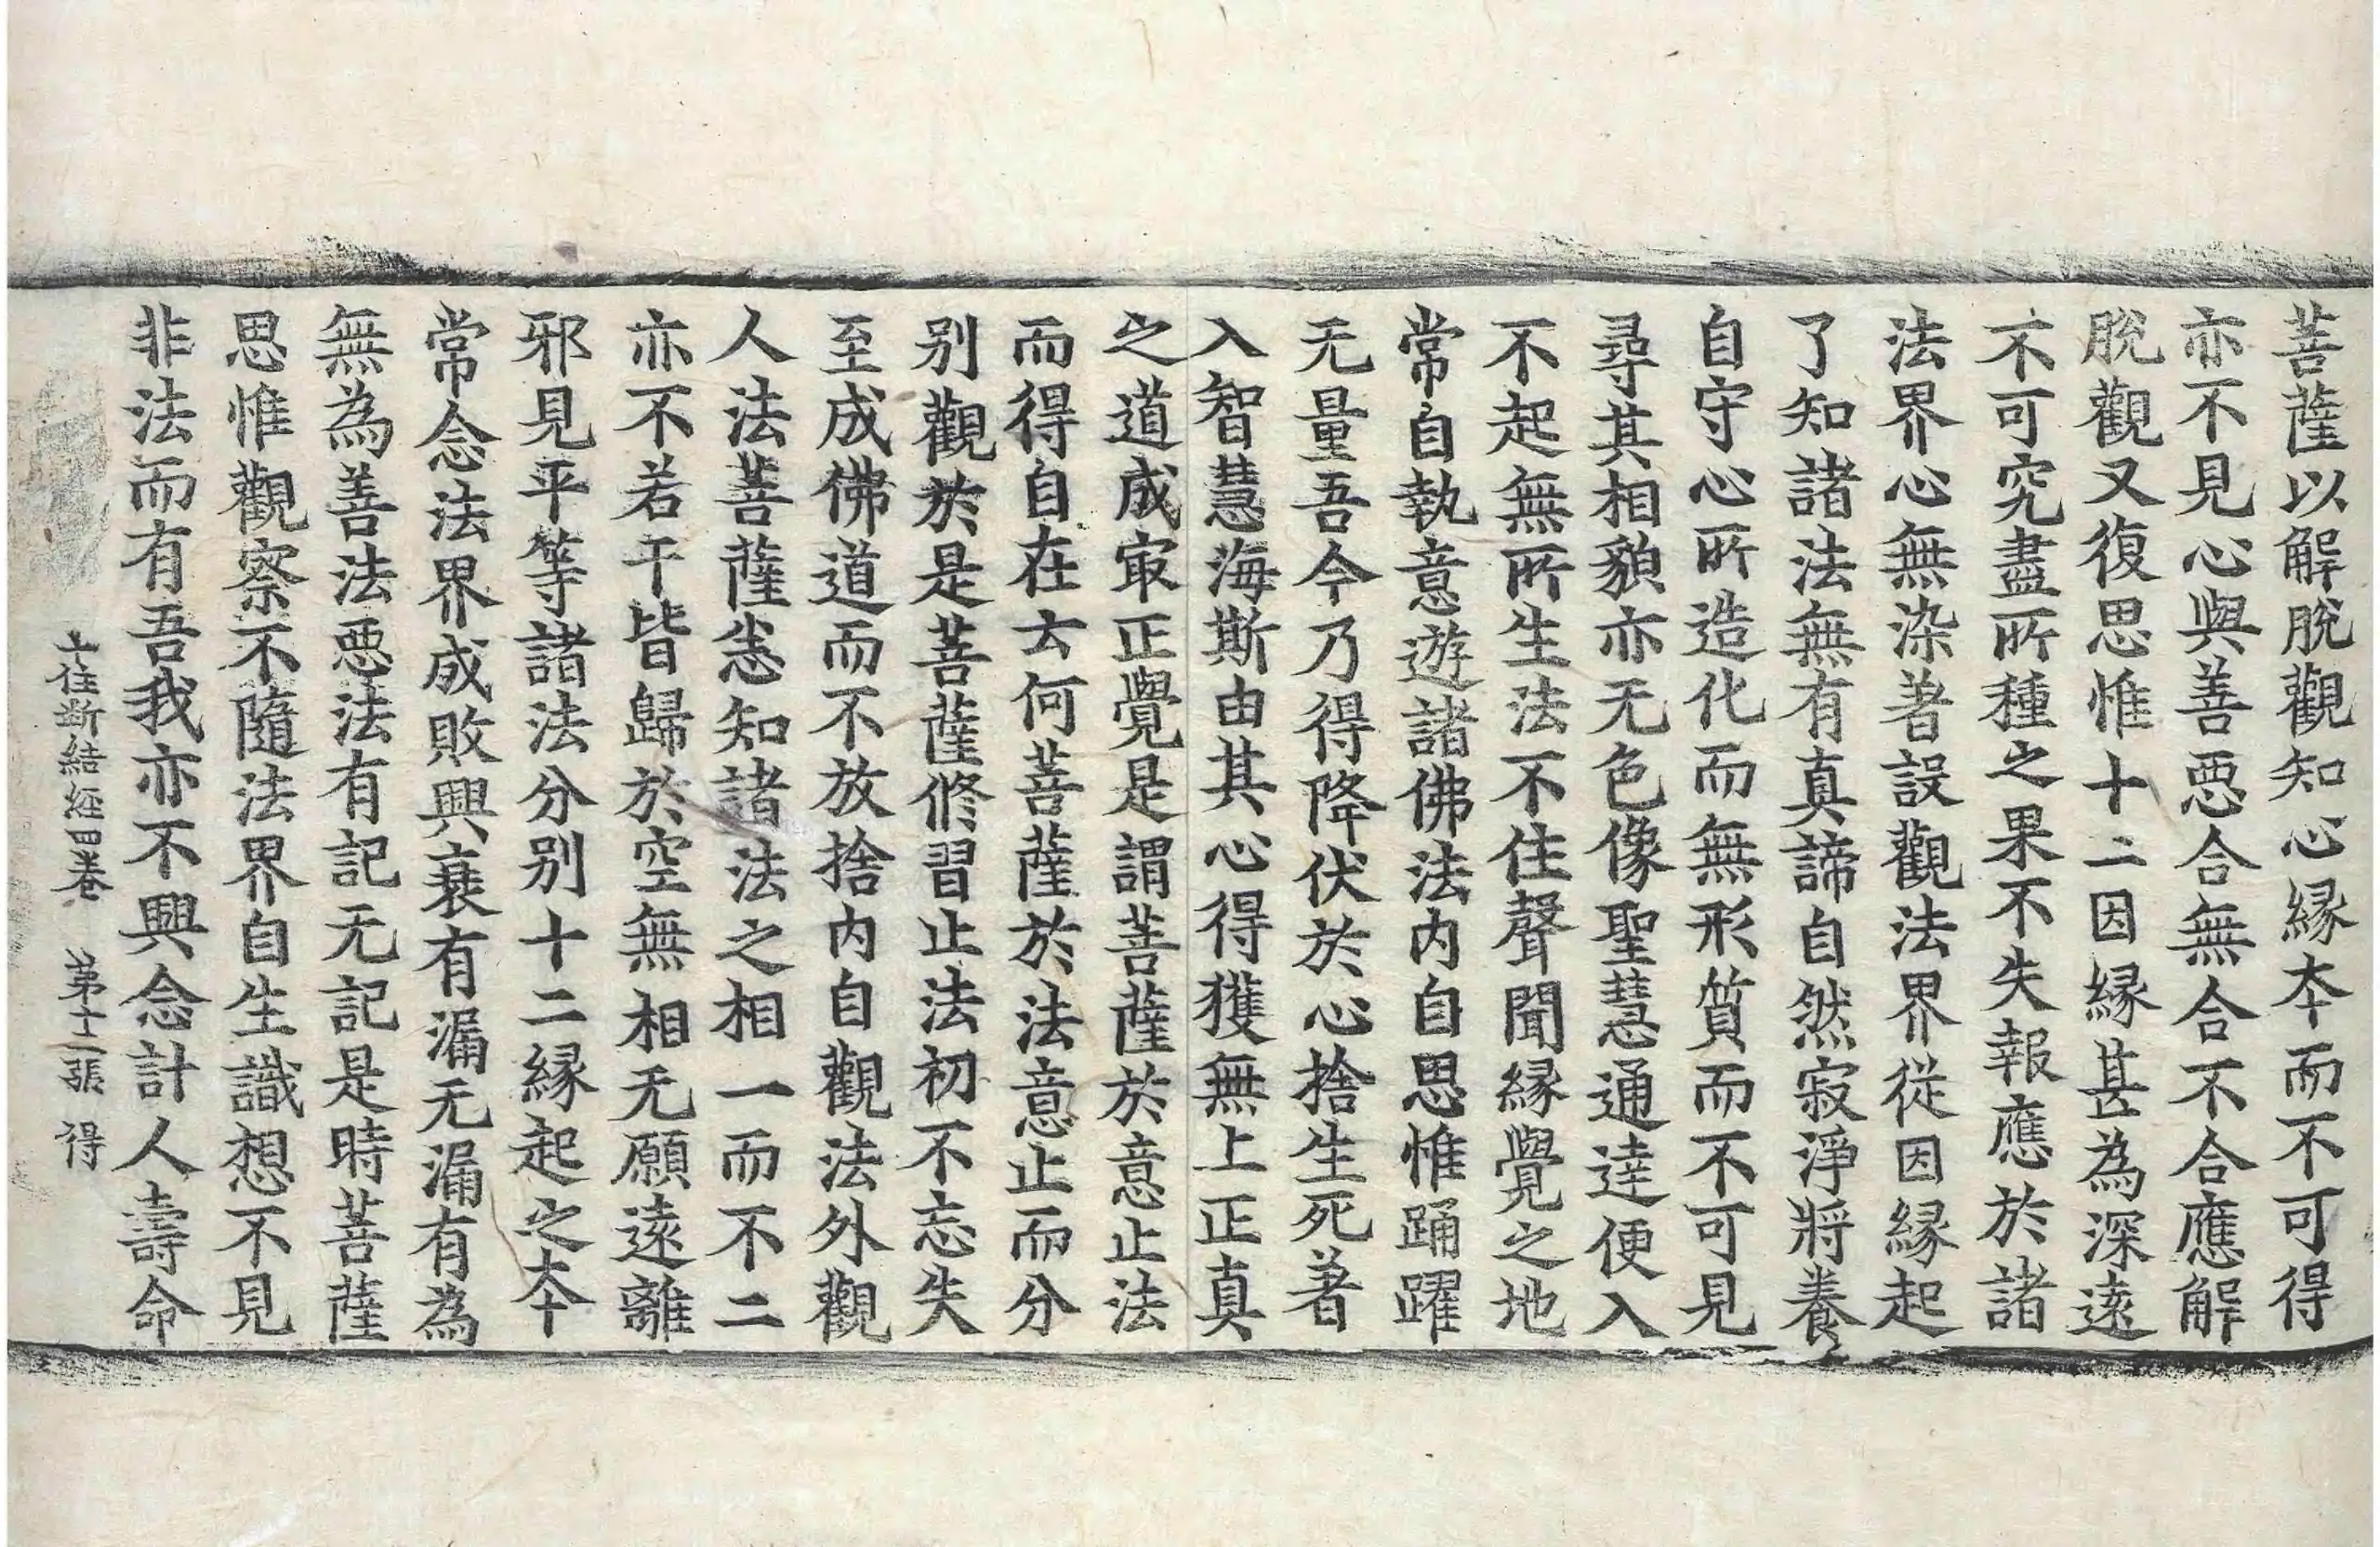 菩薩以解脫觀知心緣本而不可得
亦不見心與善惡合無合不合應解
脫觀又復思惟十二因緣甚為深遠
不可究盡所種之果不失報應於諸
法界心無染著設觀法界從因緣起
了知諸法無有真諦自然寂淨將養
自守心所造化而無形質而不可見
尋其相貌亦无色像聖慧通達便入
不起無所生法不住聲聞緣覺之地
常自執意遊諸佛法內自思惟踊躍
无量吾今乃得降伏於心捨生死著
入智慧海斯由其心得獲無上正真
之道成㝡正覺是謂菩薩於意止法
而得自在云何菩薩於法意止而分
別觀於是菩薩修習止法初不忘失
至成佛道而不放捨內自觀法外觀
人法菩薩悉知諸法之相一而不二
亦不若干皆歸於空無相无願遠離
邪見平等諸法分別十二緣起之本
常念法界成敗興衰有漏无漏有為
無為善法惡法有記无記是時菩薩
思惟觀察不隨法界自生識想不見
非法而有吾我亦不興念計人壽命
十住斷結經四卷 第十二張 得